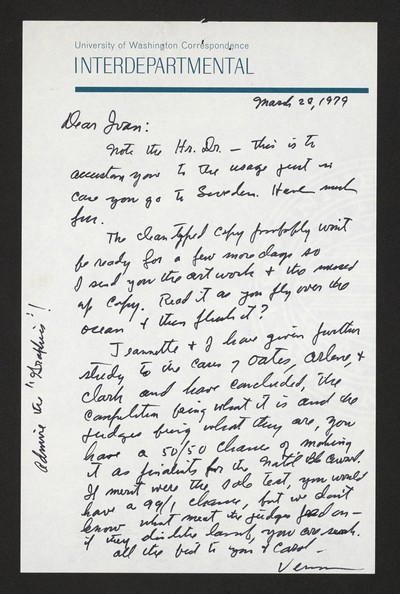 University of Washington Correspondence
INTERDEPARTMENTAL
March 20, 1979
Dear Ivan:
Note the Hr. Dr. — this is to
accustom you to the usage just in
case you go to Sweden. Have much
fun.
The clean typed copy probably won't
be ready for a few more days so
I send you the art work & the messed
up copy. Read it as you fly over the
ocean & then flush it?
Jeannette & I have given further
study to the cases of Oates, Arlene, &
Clark and have concluded, the
competition being what it is and the
judges being what they are, you
have a 50/50 chance of making
it as finalists for the Nat'l Bk Award.
If merit were the sole test, you would
have a 99/1 chance, but we don't
know what meat the judges feed on —
if they dislike lamb, you are sunk.
All the best to you & Carol —
Vernon
Admire the "Graphics"!